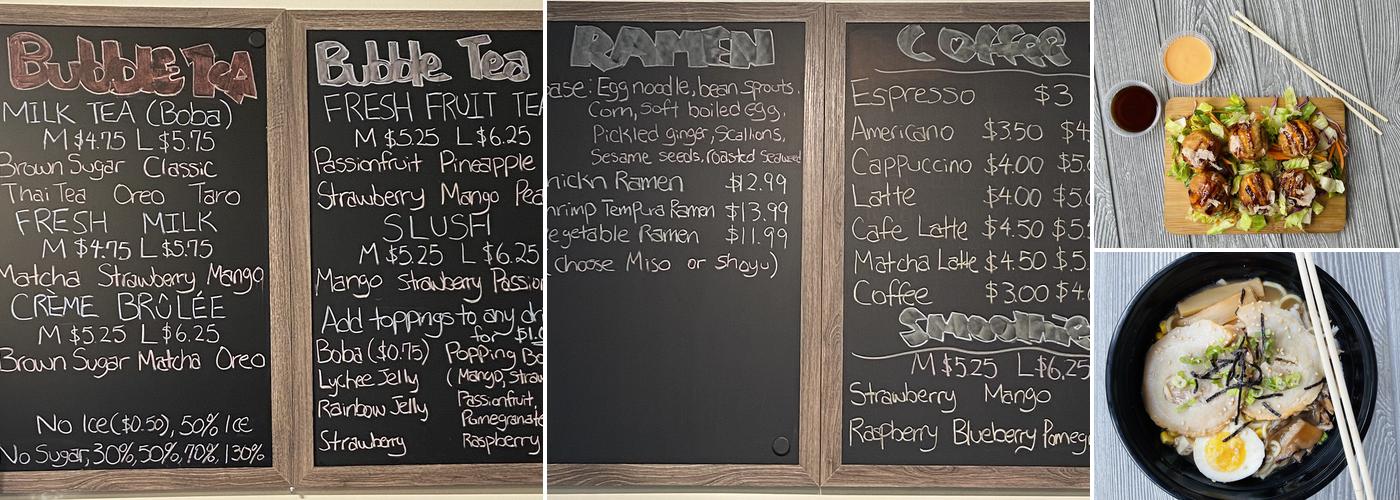 Bubble Tea
MILK TEA (Boba)
M $4.75 L $5.75
Brown Sugar Classic
Thai Tea Oreo Taro
FRESH MILK
M $4.75 L $5.75
Matcha Strawberry Mango
CRÈME BRÛLÉE
M $5.25 L $6.25
Brown Sugar Matcha Oreo
No Ice ($0.50), 50% Ice
No Sugar, 30%, 50%, 70%, 130%
Bubble Tea
FRESH FRUIT TEA
M $5.25 L $6.25
Passionfruit Pineapple
Strawberry Mango Pea
SLUSH
M $5.25 L $6.25
Mango Strawberry Passion
Add toppings to any dr
for $1.0
Boba ($0.75) Popping Bo
Lychee Jelly (Mango, Straw
Rainbow Jelly Passionfruit,
Pomegranate
Strawberry Raspberry
RAMEN
ase: Egg noodle, bean sprouts.
Corn, Soft boiled egg,
Pickled ginger, Scallions,
Sesame seeds, roasted Seaweed
hickn Ramen $12.99
hrimp Tempura Ramen $13.99
egetable Ramen $11.99
(choose Miso or Shoyu)
Coffee
Espresso $3
Americano $3.50 $4
Cappuccino $4.00 $5.
Latte $4.00 $5.
Cafe Latte $4.50 $5.
Matcha Latte $4.50 $5.
Coffee $3.00 $4.
Smoothie
M $5.25 L $6.25
Strawberry Mango
Raspberry Blueberry Pomegr